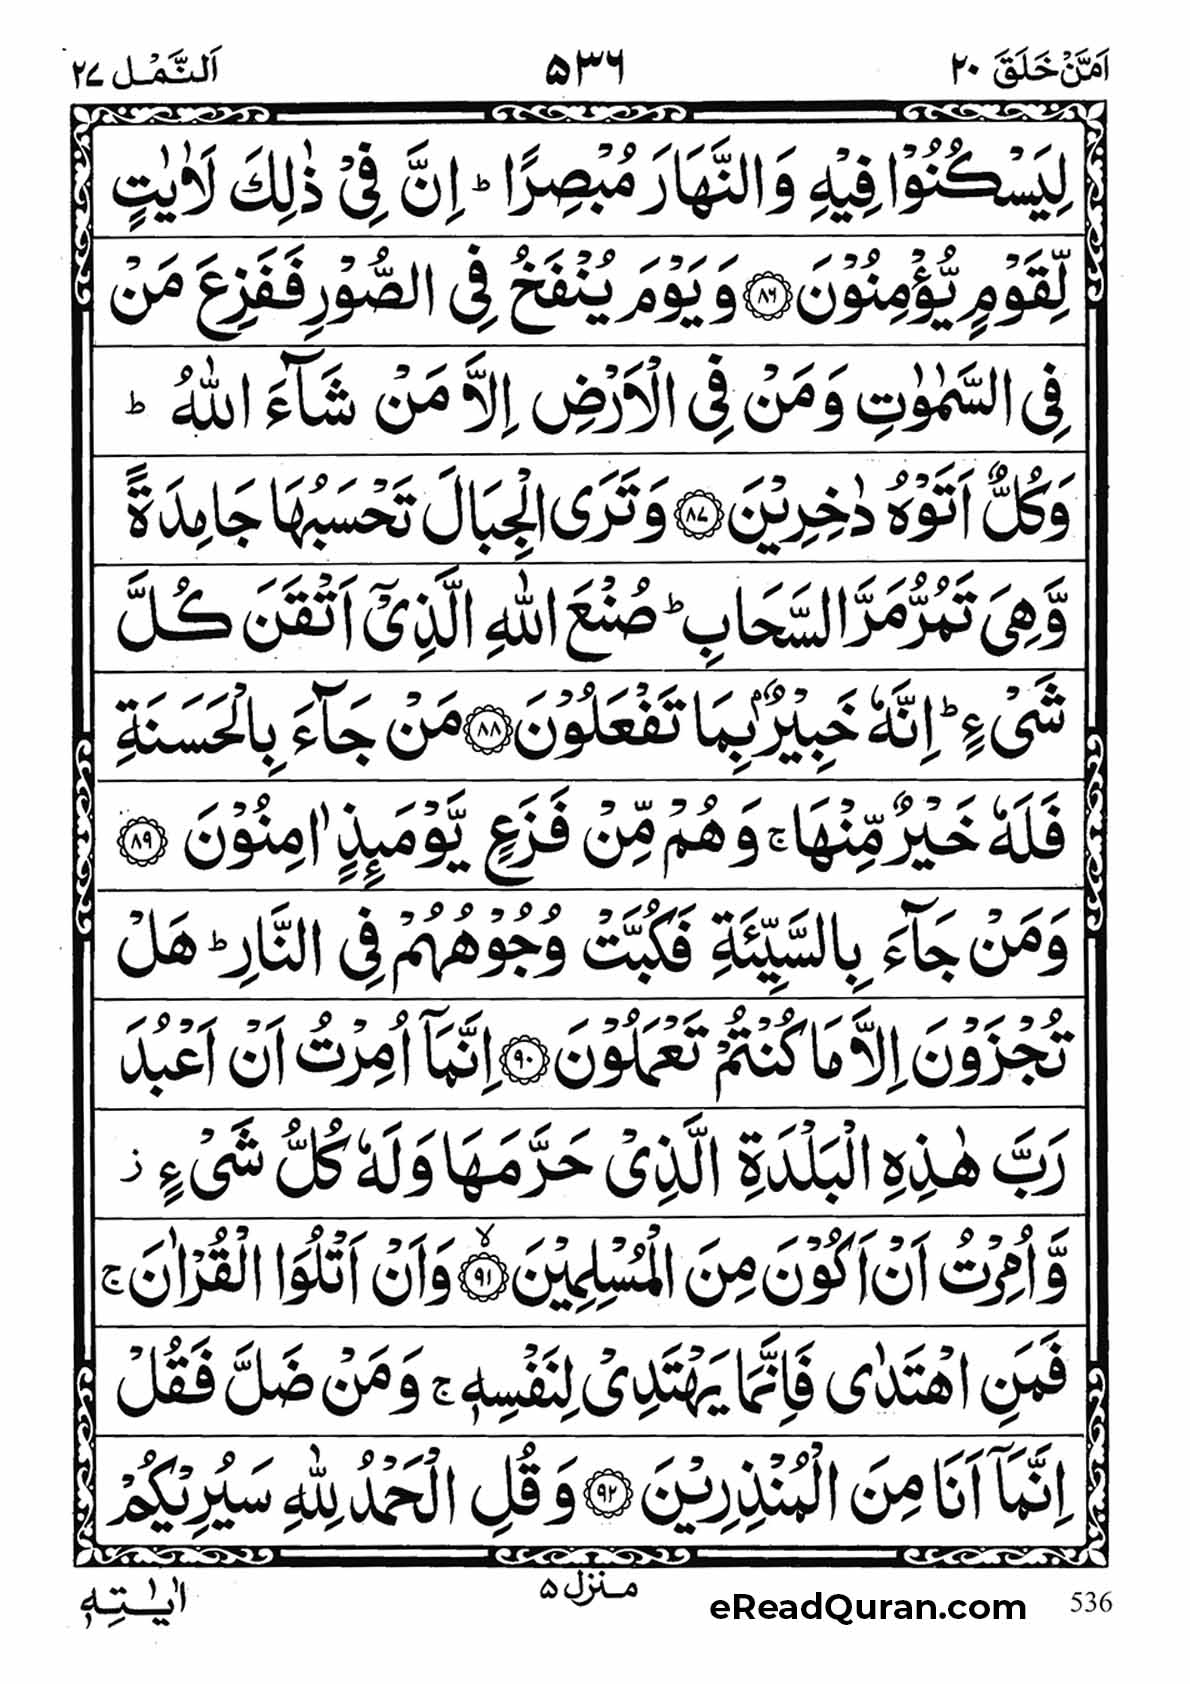 اَمَّنْ خَلَقَ ٢٠
٥٣٦
اَلنَّمْل ٢٧
لِيَسْكُنُوْا فِيْهِ وَالنَّهَارَ مُبْصِرًا ؕ اِنَّ فِيْ ذٰلِكَ لَاٰيٰتٍ
لِّقَوْمٍ يُّؤْمِنُوْنَ ﴿٨٦﴾ وَيَوْمَ يُنْفَخُ فِي الصُّوْرِ فَفَزِعَ مَنْ
فِي السَّمٰوٰتِ وَمَنْ فِي الْاَرْضِ اِلَّا مَنْ شَآءَ اللّٰهُ ؕ
وَكُلٌّ اَتَوْهُ دٰخِرِيْنَ ﴿٨٧﴾ وَتَرَى الْجِبَالَ تَحْسَبُهَا جَامِدَةً
وَّهِيَ تَمُرُّ مَرَّ السَّحَابِ ؕ صُنْعَ اللّٰهِ الَّذِيْۤ اَتْقَنَ كُلَّ
شَيْءٍ ؕ اِنَّهٗ خَبِيْرٌۢ بِمَا تَفْعَلُوْنَ ﴿٨٨﴾ مَنْ جَآءَ بِالْحَسَنَةِ
فَلَهٗ خَيْرٌ مِّنْهَا ۚ وَهُمْ مِّنْ فَزَعٍ يَّوْمَئِذٍ اٰمِنُوْنَ ﴿٨٩﴾
وَمَنْ جَآءَ بِالسَّيِّئَةِ فَكُبَّتْ وُجُوْهُهُمْ فِي النَّارِ ؕ هَلْ
تُجْزَوْنَ اِلَّا مَا كُنْتُمْ تَعْمَلُوْنَ ﴿٩٠﴾ اِنَّمَاۤ اُمِرْتُ اَنْ اَعْبُدَ
رَبَّ هٰذِهِ الْبَلْدَةِ الَّذِيْ حَرَّمَهَا وَلَهٗ كُلُّ شَيْءٍ ز
وَّاُمِرْتُ اَنْ اَكُوْنَ مِنَ الْمُسْلِمِيْنَ ﴿٩١﴾ۙ وَاَنْ اَتْلُوَا الْقُرْاٰنَ ۚ
فَمَنِ اهْتَدٰى فَاِنَّمَا يَهْتَدِيْ لِنَفْسِهٖ ۚ وَمَنْ ضَلَّ فَقُلْ
اِنَّمَاۤ اَنَا مِنَ الْمُنْذِرِيْنَ ﴿٩٢﴾ وَقُلِ الْحَمْدُ لِلّٰهِ سَيُرِيْكُمْ
اٰيٰتِهٖ
منزل ٥
eReadQuran.com
536